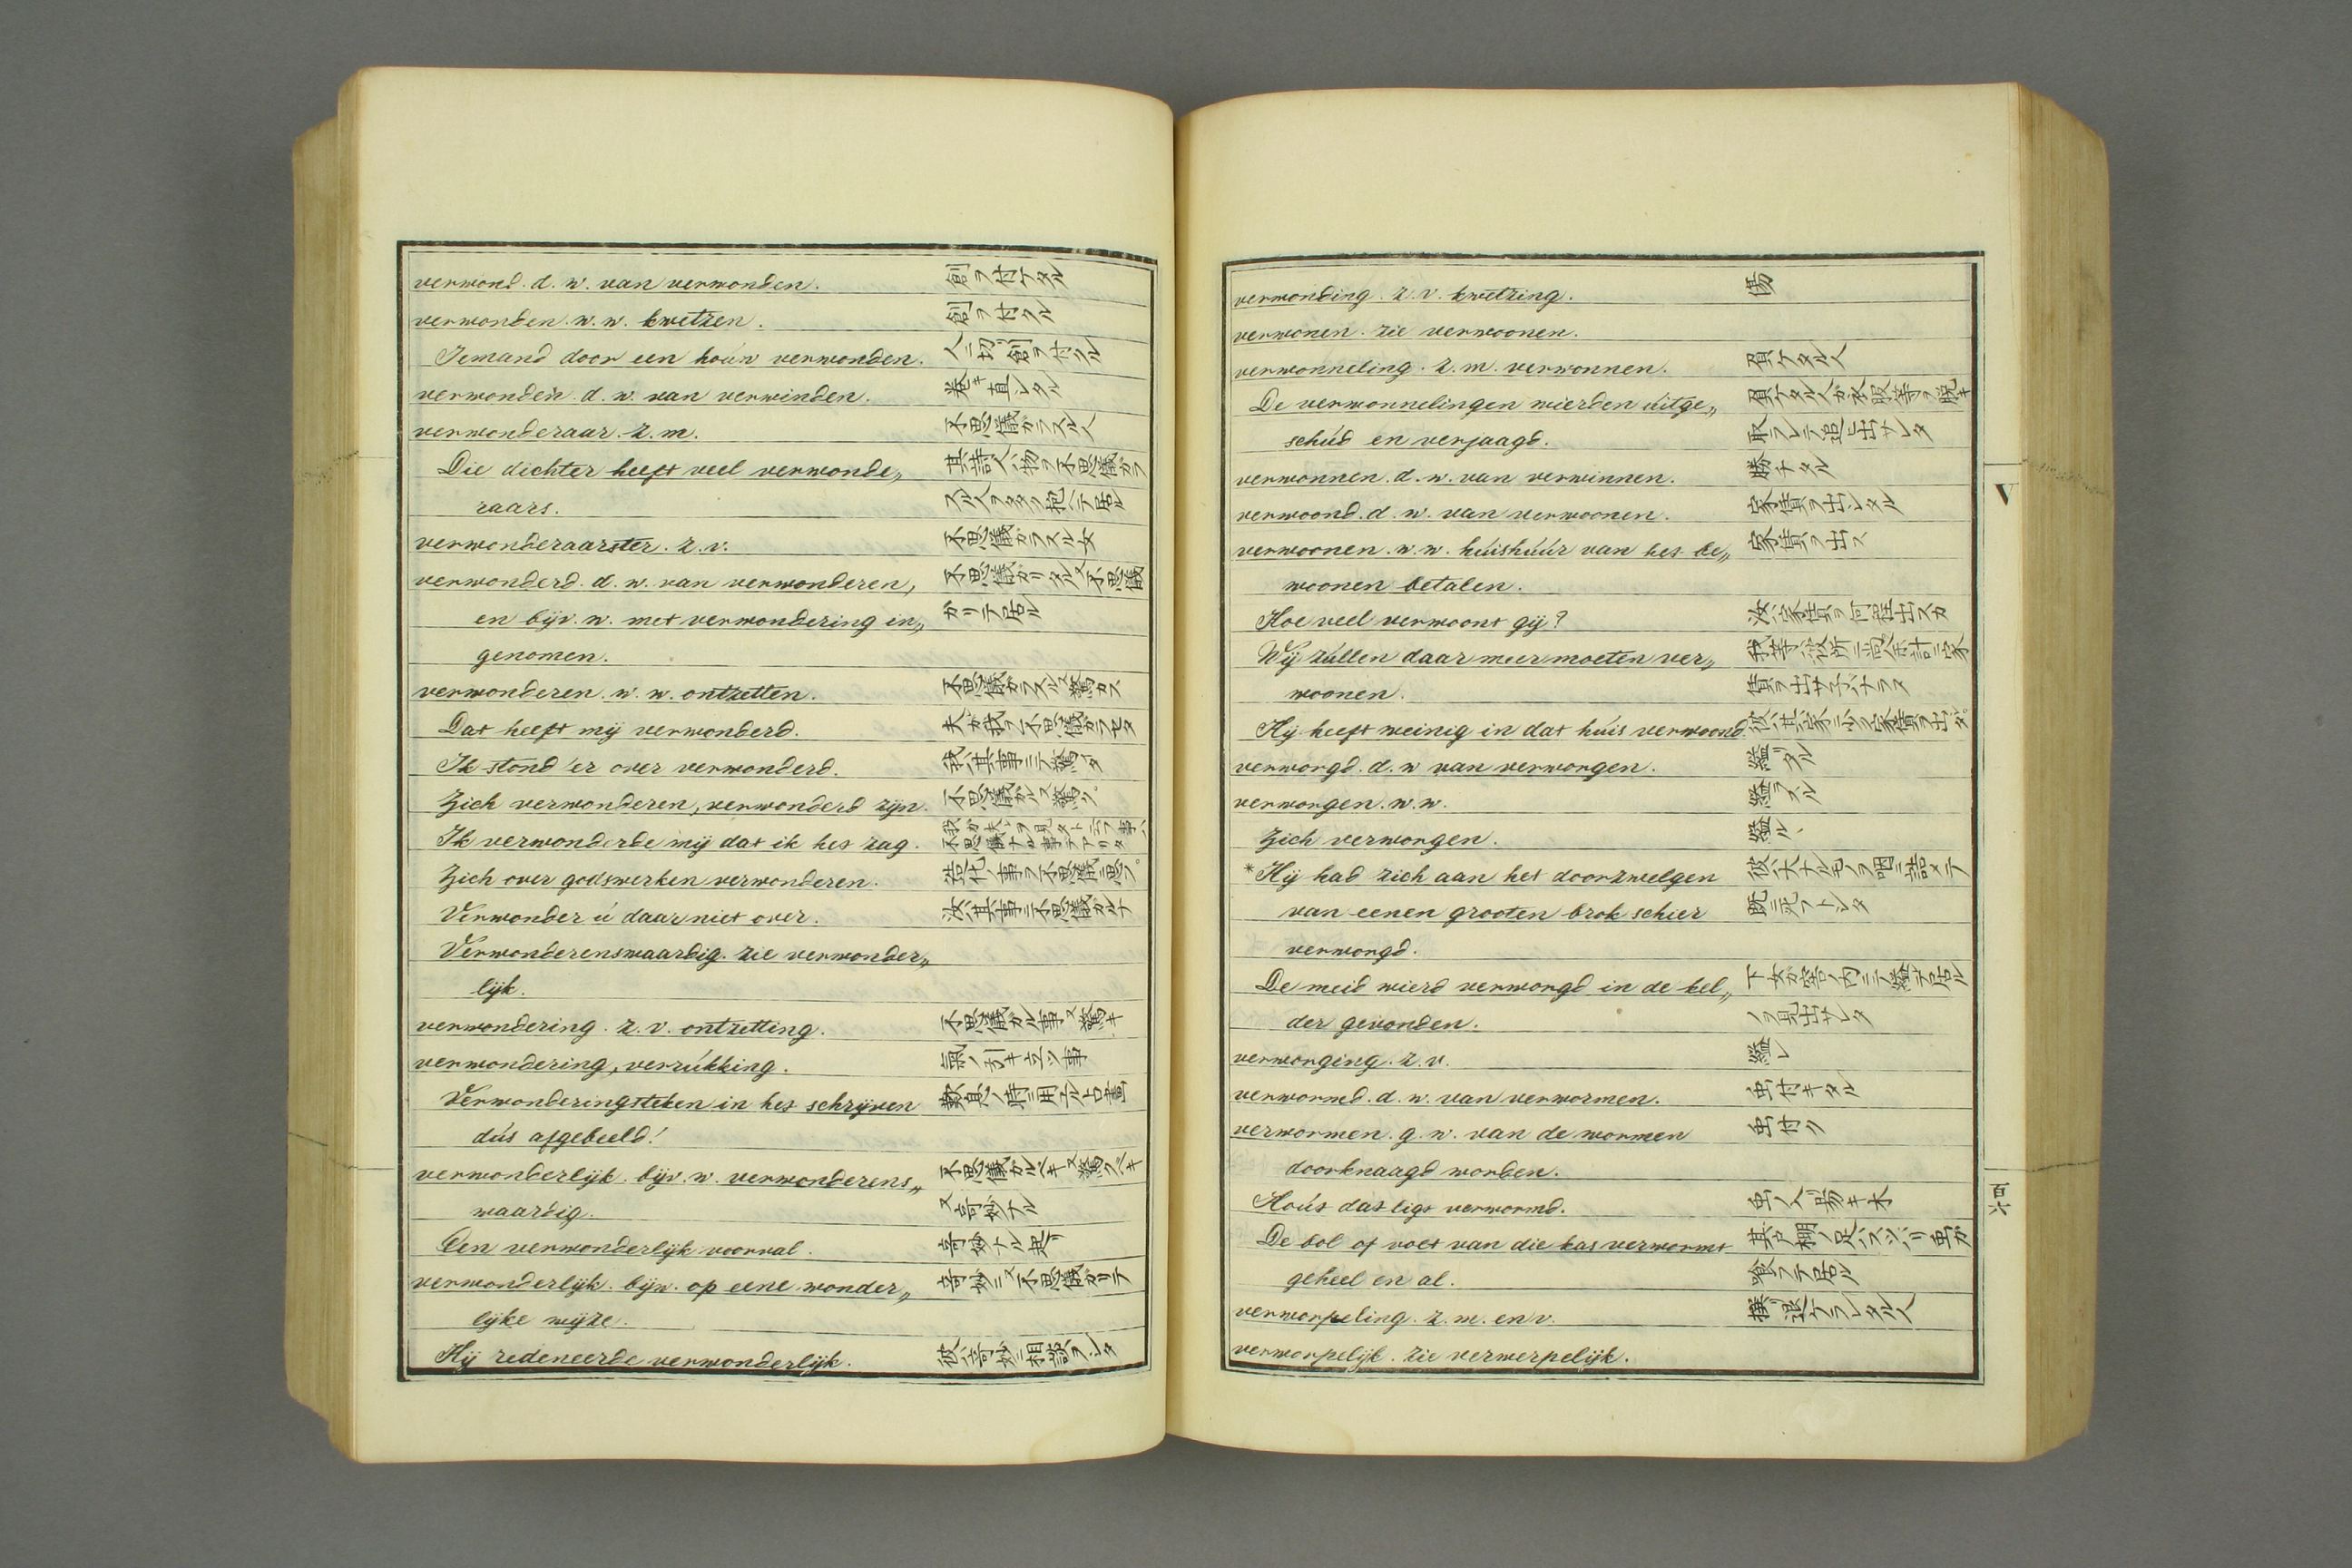 verwond. d. w. van verwonden. 創ヲ付ケタル
verwonden. w. w. kwetzen. 創ヲ付クル
Iemand door een houw verwonden. 人ニ切創ヲ付クル
verwonden. d. w. van verwinden. 巻キ直シタル
verwonderaar. z. m. 不思儀ガラスル人
Die dichter heeft veel verwonde„ 其詩人ハ物ヲ不思儀ガラ
raars. スル人ヲ多ク抱ヘテ居ル
verwonderaarster. z. v. 不思儀ガラスル女
verwonderd. d. w. van verwonderen, 不思儀ガリタル又不思儀
en bijv. w. met verwondering in„ ガリテ居ル
genomen.
verwonderen. w. w. ontzetten. 不思儀ガラスル又驚カス
Dat heeft mij verwonderd. 夫ガ我ヲ不思儀ガラセタ
Ik stond 'er over verwonderd. 我ハ其事ニテ驚イタ
Zich verwonderen, verwonderd zijn. 不思儀ガル又驚ク
Ik verwonderde mij dat ik het zag. 我ガ夫レヲ見タト云フ事ハ不思儀ナル事デアリタ
Zich over godswerken verwonderen. 造化ノ事ヲ不思儀ニ思フ
Verwonder ú daar niet over. 汝ハ其事ニ不思儀ガルナ
Verwonderenswaardig. zie verwonder„
lijk.
verwondering. z. v. ontzetting. 不思儀ガル事又驚キ
verwondering, verrúkking. 氣ノ引キ立ツ事
Verwonderingsteken in het schrijven 歎息ノ時ニ用ユル印
dús afgebeeld!
verwonderlijk. bijv. w. verwonderens„ 不思儀ガルベキ又驚クベキ
waardig. 又奇妙ナル
Een verwonderlijk voorval. 奇妙ナル起リ
verwonderlijk. bijw. op eene wonder„ 奇妙ニ又不思儀ガリテ
lijke wijze.
Hij redeneerde verwonderlijk. 彼ハ奇妙ニ相談ヲシタ
verwonding. z. v. kwetzing. 傷
verwonen. zie verwoonen.
verwonneling. z. m. verwonnen. 負ケタル人
De verwonnelingen wierden úitge„ 負ケタル人ガ衣服等ヲ脱キ
schúd en verjaagd. 取ラレテ追ヒ出サレタ
verwonnen. d. w. van verwinnen. 勝チタル
verwoond. d. w. van verwoonen. 家賃ヲ出シタル
verwoonen. w. w. húishúúr van het be„ 家賃ヲ出ス
woonen betalen.
Hoe veel verwoont gij? 汝ハ家賃ヲ何程出スカ
Wij zúllen daar meer moeten ver„ 我等ハ彼所ニ尚余計ニ家
woonen. 賃ヲ出サネバナラヌ
Hij heeft weinig in dat húis verwoond. 彼ハ其家ニ少ク家賃ヲ出シタ
verworgd. d. w van verworgen. 縊リタル
verworgen. w. w. 縊ラスル
Zich verworgen. 縊ル
*Hij had zich aan het doorzwelgen 彼ハ大ナルモノヲ咽ニ詰メテ
van eenen grooten brok schier 既ニ死ナフトシタ
verworgd.
De meid wierd verworgd in de kel„ 下女ガ窖ノ内ニテ縊テ居ル
der gevonden. ノヲ見出サレタ
verworging. z. v. 縊レ
verwormd. d. w. van verwormen. 虫付キタル
verwormen. g. w. van de wormen 虫付ク
doorknaagd worden.
Hoút dat ligt verwormd. 虫ノ入リ易キ木
De bol of voet van die kas verwormt 其戸棚ノ足ハスッパリ虫ガ
geheel en al. 喰フテ居ル
verworpeling. z. m. en v. 撰リ退ケラレタル人
verworpelijk. zie verwerpelijk.
V